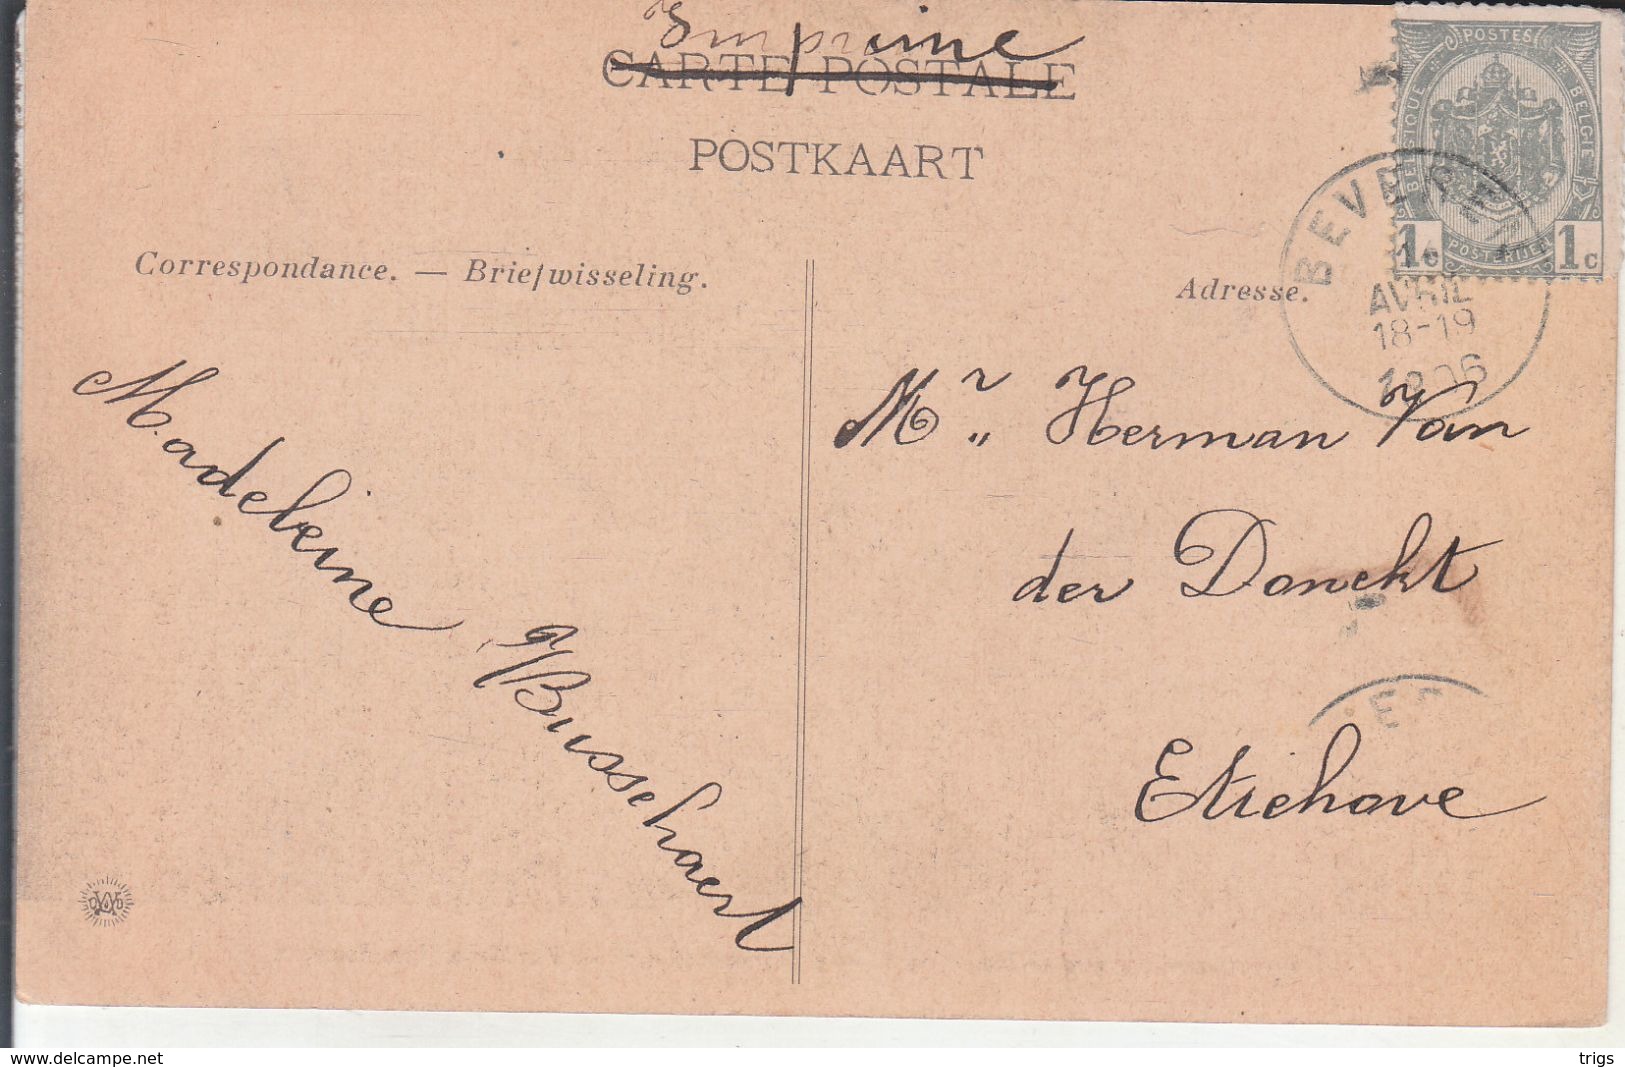 Imprimé
CARTE POSTALE
POSTKAART
POSTES
BELGIQUE
BELGIË
POSTERIJEN
1c 1c
BEVEREN
AVRIL
18-19
1906
Correspondance. — Briefwisseling.
Adresse.
Madeleine
Busschaert
Mr. Herman Van
der Donckt
Etichove
www.delcampe.net
trigs